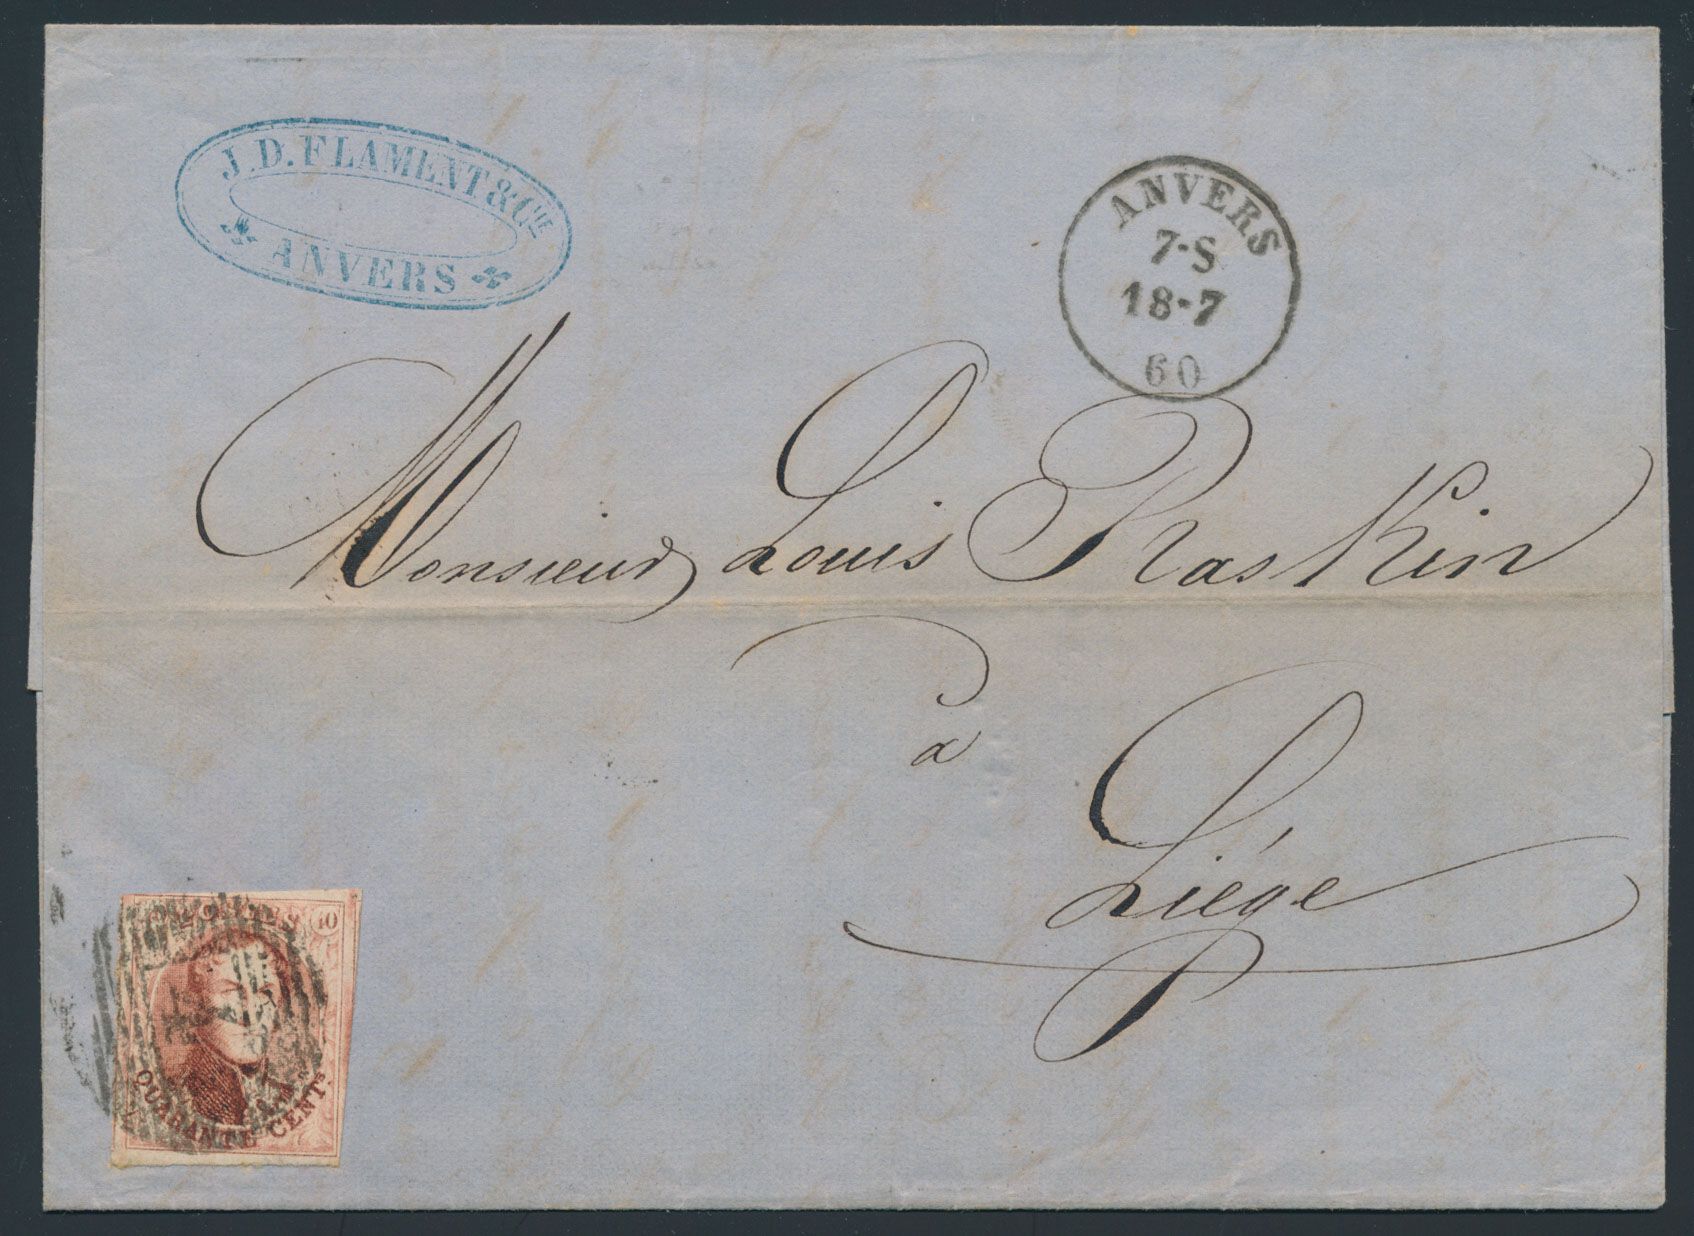 J.D. FLAMENT & CIE
ANVERS
ANVERS
7-S
18-7
60
Monsieur Louis Raskin
à
Liége
POSTES 40
QUARANTE CENTS.